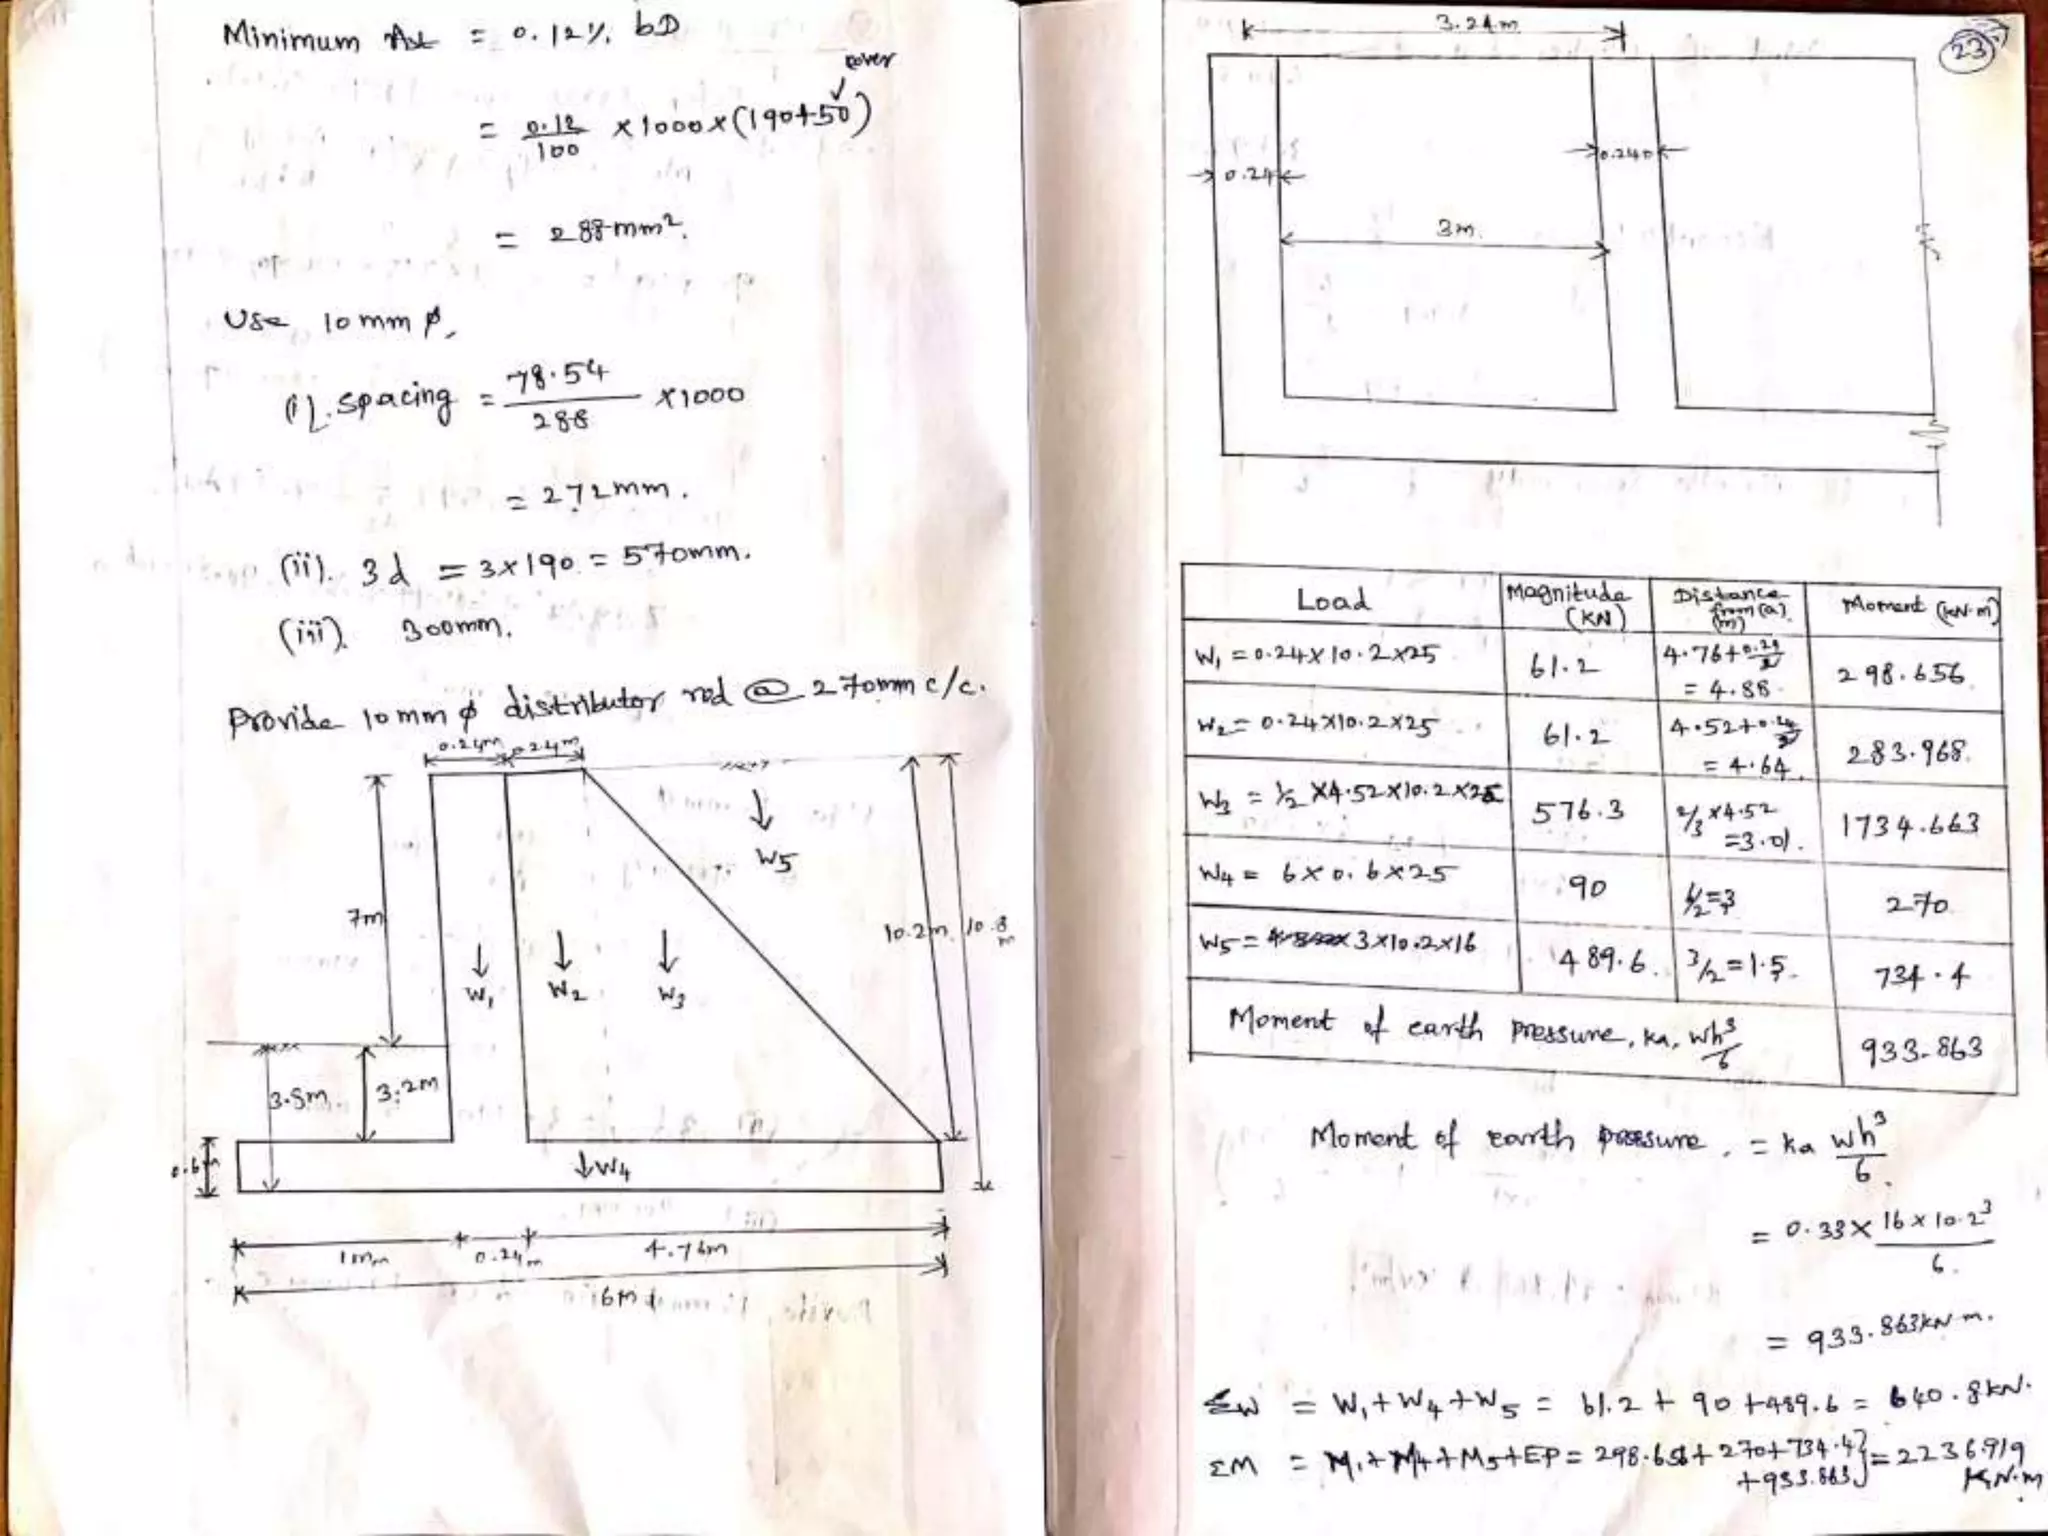 Minimum Ast = 0.12% bD
cover
= 0.12/100 × 1000 × (190+50)
= 288mm².
Use 10mm φ,
(i). spacing = 78.54/288 × 1000
= 272mm.
(ii). 3d = 3×190 = 570mm.
(iii). 300mm.
Provide 10mm φ distributor rod @ 270mm c/c.
0.24m 0.24m
W5
7m
10.2m. 10.8m
W1 W2 W3
3.8m 3.2m
0.6m
W4
1m 0.24m 4.76m
6m
3.24m
23
0.24 0.240
3m.
Load Magnitude (KN) Distance from (a) (m) Moment (kN·m)
W1 = 0.24×10.2×25 61.2 4.76+0.24/2 = 4.88. 298.656
W2 = 0.24×10.2×25 61.2 4.52+0.24/2 = 4.64. 283.968
W3 = ½ ×4.52×10.2×25 576.3 2/3×4.52 =3.01. 1734.663
W4 = 6×0.6×25 90 6/2=3 270
W5 = 3×10.2×16 489.6 3/2=1.5. 734.4
Moment of earth pressure, ka, wh³/6 933.863
Moment of earth pressure, = ka wh³/6.
= 0.33× 16×10.2³/6.
= 933.863kN m.
ΣW = W1+W4+W5 = 61.2 + 90 +489.6 = 640.8kN.
ΣM = M1+M4+M5+EP = 298.656+270+734.4+933.863} = 2236.919 KN·m